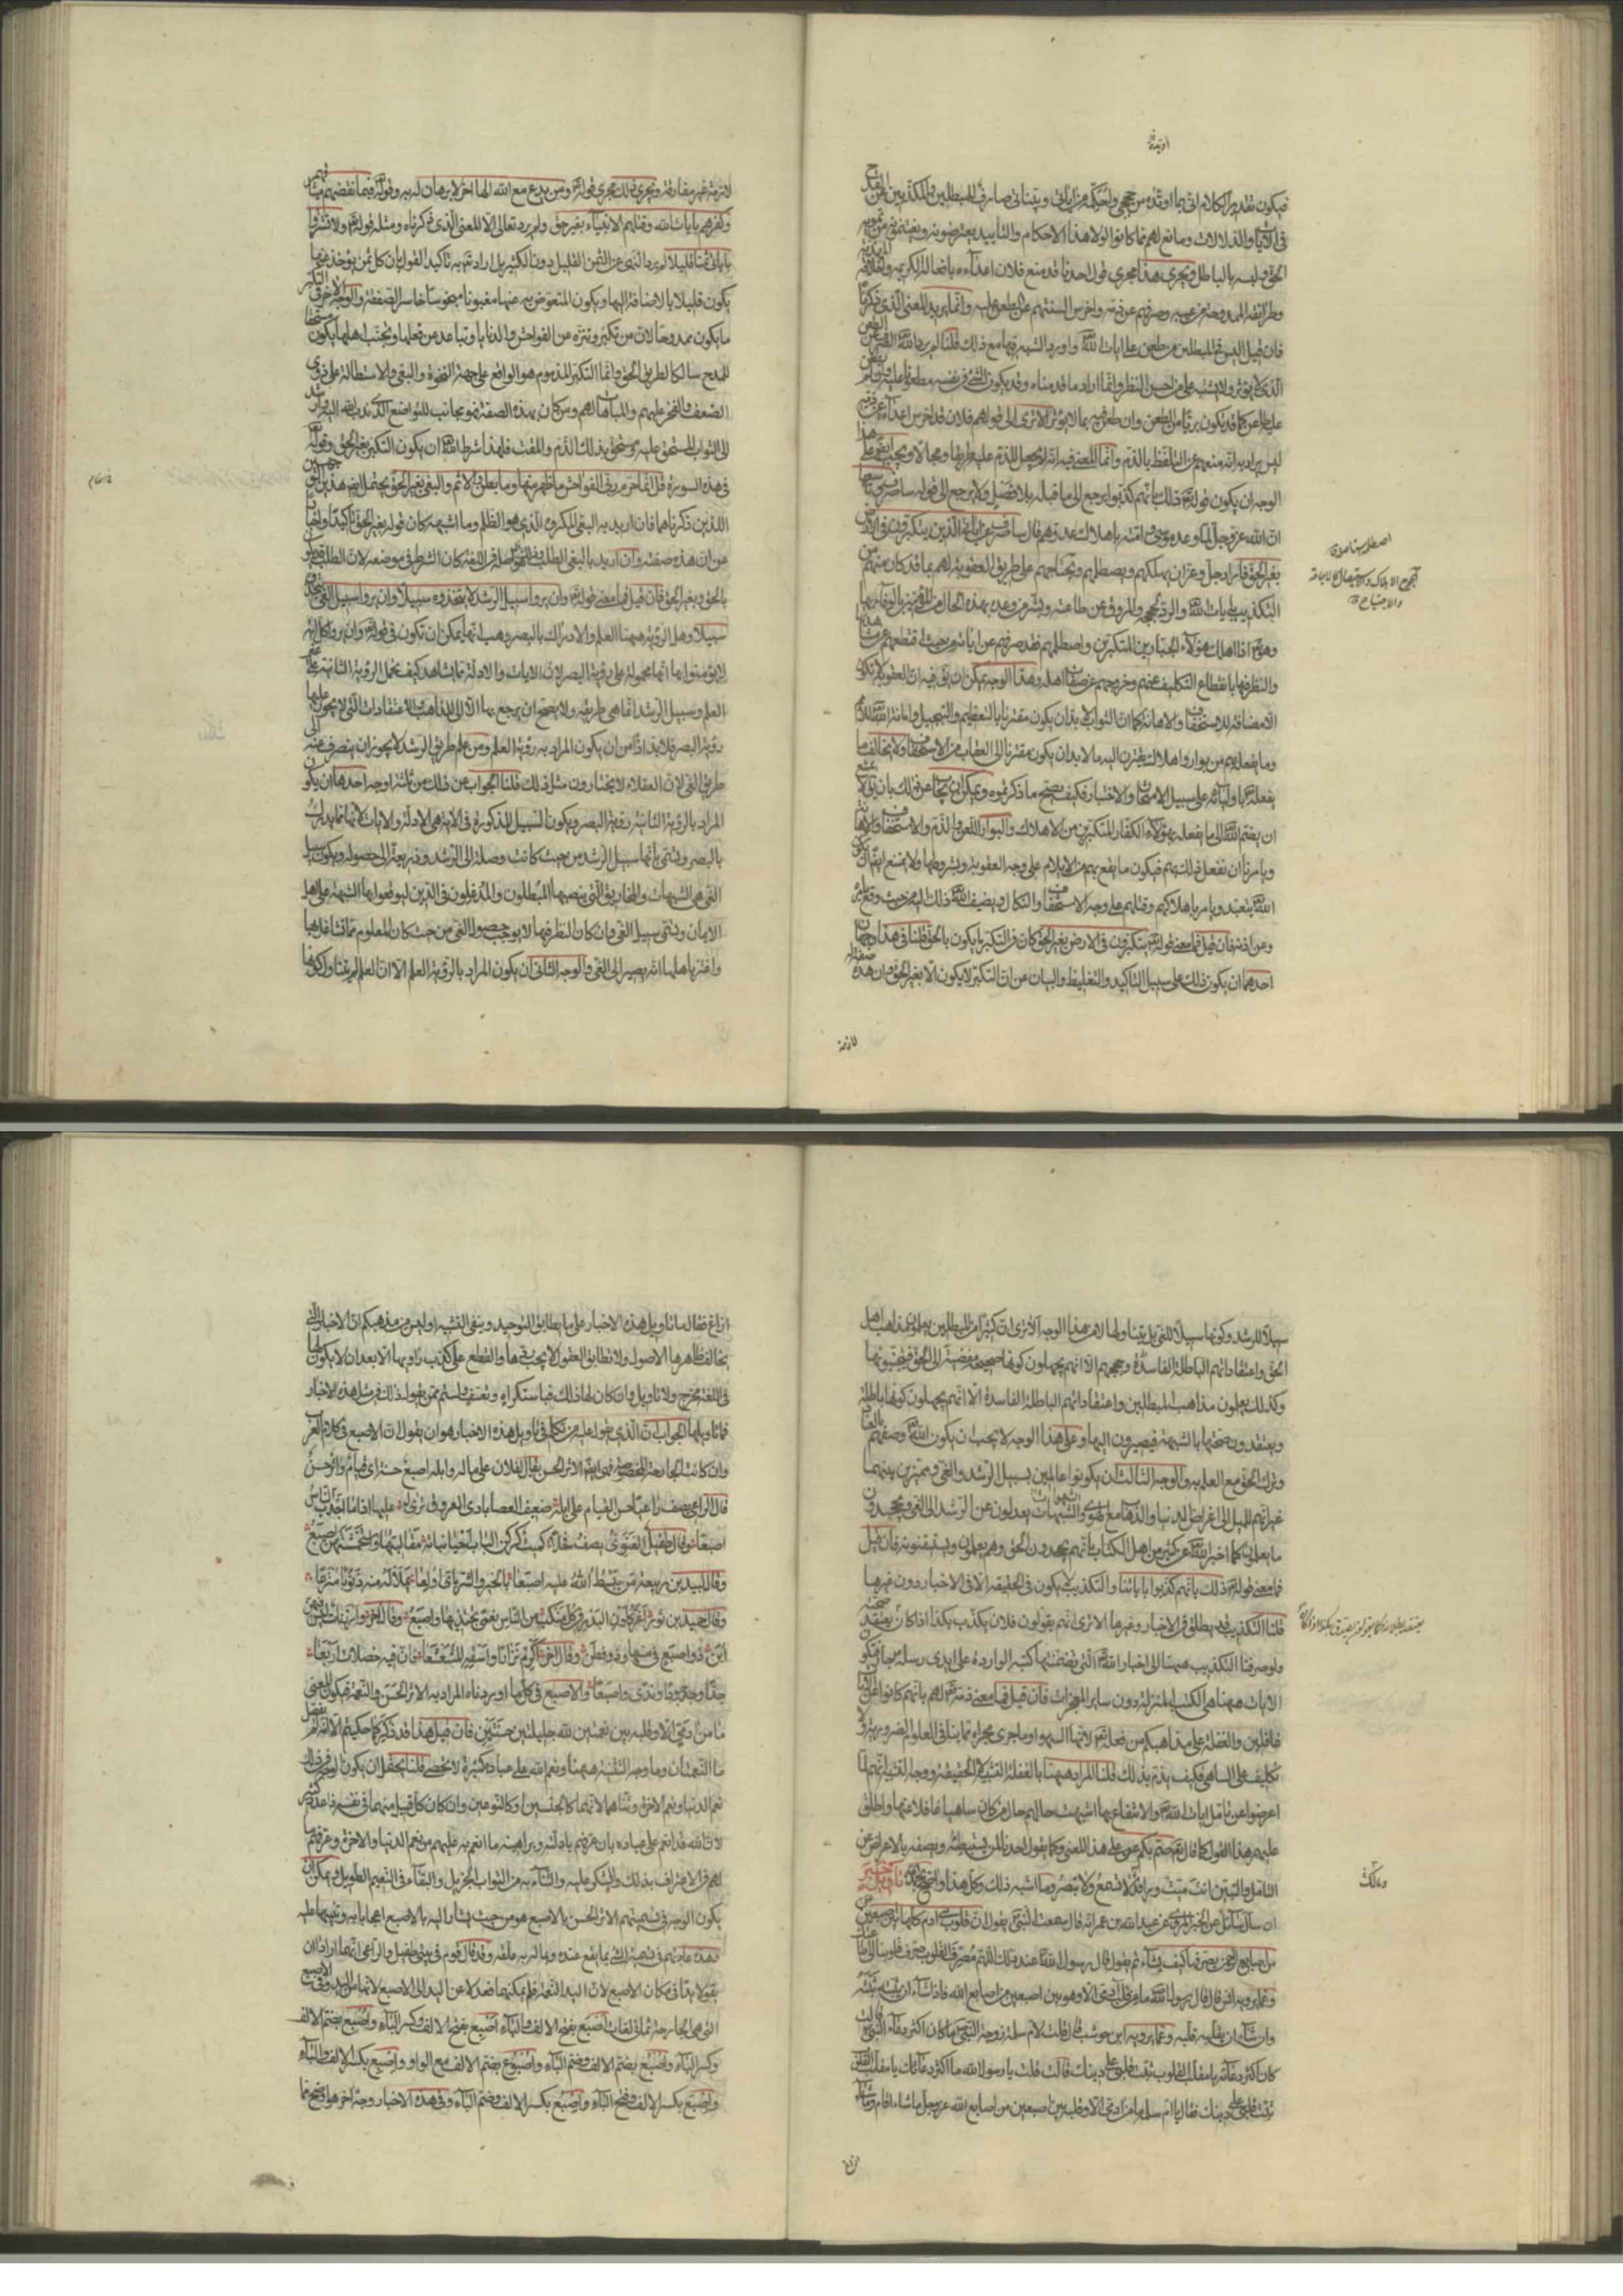 اوتيته
فيكون تقدير الكلام انى بما اوتده من حججى واحكمه من اياتى وبيناتى صارف للمبطلين والمكذبين عن القدح
فى الايات والدلالات ومانع لهم مما كانوا لولا هذا الاحكام والتأييد يعترضونه ويغتنمونه من تمويه
الحق ولبسه بالباطل ويجرى هذا مجرى قول احدنا قد منع فلان اعداءه بافعاله الكريمه
وطرائقه الممدوحة من عيبه وصرفهم عن ذمه واخرس السنتهم عن الطعن عليه وانما يريد المعنى الذى ذكرناه
فان قيل اليس فى المبطلين من طعن على ايات الله واورد الشبه فيها مع ذلك قلنا لم يرد الله الصرف عن الطعن
الذى لا يؤثر ولا يشتبه على من احسن النظر وانما اراد ما قدمناه وقد يكون الشىء فى نفسه مطعونا عليه وان لم
يطعن عليه طاعن كما قد يكون بريئا من الطعن وان طعن فيه بما لا يؤثر الا ترى الى قولهم فلان قد اخرس اعداءه عن ذمه
ليس يراد به انه منعهم عن التلفظ بالذم وانما المعنى فيه انه لم يجعل للذم عليه طريقا ومجالا ويجب على هذا
الوجه ان يكون قوله ذلك بانهم كذبوا يرجع الى ما قبله بلا فصل ولا يرجع الى قوله ساصرف
ان الله عز وجل لما وعد موسى وامته باهلاك عدوهم قال ساصرف عن اياتى الذين يتكبرون فى الارض
بغير الحق فاراد جل وعز ان يهلكهم ويصطلمهم ويجتاحهم على طريق العقوبة لهم بما قد كان منهم من
التكذيب بايات الله والرد لحججه والمروق عن طاعته وبشر من وعده بهذه الحال من المؤمنين بالوفاء بها
وهو اذا اهلك هؤلاء الجبارين المتكبرين واصطلمهم فقد صرفهم عن اياته من حيث اقتطعهم عن مشاهدتها
والنظر فيها بانقطاع التكليف عنهم وخروجهم عن صفات اهله وهذا الوجه يمكن ان يقال فيه ان العقوبة لا تكون
الا مضافة للاستخفاف والاهانة كما ان الثواب لا بد ان يكون مقترنا بالتعظيم والتبجيل واماتة الله
وما يفعله بهم من بوار واهلاك لا يقترن اليه ما لا بد ان يكون مقترنا الى العقاب من الاستخفاف ولا يخالف ما
يفعله باوليائه على سبيل الامتحان والاختبار فكيف يصح ما ذكرتموه ويمكن ان يجاب عن ذلك بان يقال لا يمتنع
ان يضم الله الى ما يفعله بهؤلاء الكفار المتكبرين من الاهلاك والبوار اللعن والذم والاستخفاف والاهانة
ويامرنا ان نفعل ذلك بهم فيكون ما يقع بهم من الايلام على وجه العقوبة وبشروطها ولا يمتنع ايضا ان يكون
الله يتعبد ويامر باهلاكهم وقتلهم على وجه الاستخفاف والنكال ويضيف الله ذلك اليه من حيث وقع بامره
وعن اذنه فان قيل فما معنى قوله يتكبرون فى الارض بغير الحق كان فى التكبر ما يكون بالحق قلنا فى هذا وجهان
احدهما ان يكون ذلك على سبيل التاكيد والتغليظ والبيان عن ان التكبر لا يكون الا بغير الحق وان هذه صفة له
لازمة
لازمة غير مفارقة ويجرى ذلك مجرى قوله ومن يدع مع الله الها اخر لا برهان له به وقوله فبما نقضهم ميثاقهم
وكفرهم بايات الله وقتلهم الانبياء بغير حق ولم يرد تعالى الا المعنى الذى ذكرناه ومثله قوله ولا تشتروا
باياتى ثمنا قليلا لم يرد النهى عن الثمن القليل دون الكثير بل اراد به تاكيد القول بان كل ثمن يؤخذ عنها
يكون قليلا بالاضافة اليها ويكون المتعوض به عنها مغبونا مبخوسا خاسر الصفقة والوجه الاخر ان فى التكبر
ما يكون ممدوحا لان من تكبر وتنزه عن الفواحش والدنايا وتباعد عن فعلها وتجنب اهلها يكون مستحقا
للمدح سالكا لطريق الحق وانما التكبر المذموم هو الواقع على جهة النخوة والبغى والاستطالة على ذوى
الضعف والفخر عليهم والمباهاة لهم ومن كان بهذه الصفة فهو مجانب للتواضع الذى ندب الله اليه وارشد
الى الثواب المستحق عليه ومستحق بذلك الذم والمقت فلهذا شرط الله ان يكون التكبر بغير الحق وقوله
فى هذه السورة قل انما حرم ربى الفواحش ما ظهر منها وما بطن والاثم والبغى بغير الحق يحتمل ايضا هذين الوجهين
اللذين ذكرناهما فان اريد به البغى المكروه الذى هو الظلم وما اشبهه كان قوله بغير الحق تاكيدا واخبارا
عن ان هذه صفته وان اريد بالبغى الطلب وهو اصله فى اللغة كان الشرط فى موضعه لان الطلب قد يكون
بالحق وبغير الحق فان قيل فما معنى قوله وان يروا سبيل الرشد لا يتخذوه سبيلا وان يروا سبيل الغى يتخذوه
سبيلا وهل الرؤية ههنا العلم والادراك بالبصر وهب انها يمكن ان تكون فى قوله وان يروا كل اية
لا يؤمنوا بها انها محمولة على رؤية البصر لان الايات والادلة مما يشاهد كيف تحمل الرؤية الثانية على
العلم وسبيل الرشد انما هى طريقه ولا يصح ان يرجع بها الا الى المذاهب والاعتقادات التى لا يجوز عليها
رؤية البصر فلا بد اذا من ان يكون المراد به رؤية العلم ومن علم طريق الرشد لا يجوز ان ينصرف عنه الى
طريق الغى لان العقلاء لا يختارون مثل ذلك قلنا الجواب عن ذلك من ثلثة اوجه احدها ان يكون
المراد بالرؤية الثانية رؤية البصر ويكون السبيل المذكورة فى الاية هى الادلة والايات لانها مما يدرك
بالبصر وتسمى بانها سبيل الرشد من حيث كانت وصلة الى الرشد وذريعة الى حصوله ويكون سبيل
الغى هى الشبهات والمخاريق التى ينصبها المبطلون والمدغلون فى الدين ليوقعوا بها الشبهة على اهل
الايمان وتسمى سبيل الغى وان كان النظر فيها لا يوجب حصول الغى من حيث كان المعلوم ممن تشاغل بها
واغتر باهلها انه يصير الى الغى والوجه الثانى ان يكون المراد بالرؤية العلم الا ان العلم لم يتناول كونها
سبيلا للرشد وكونها سبيلا للغى بل يتناولها لا من هذا الوجه الا ترى ان كثيرا من المبطلين يعلمون مذاهب اهل
الحق واعتقاداتهم الباطلة الفاسدة وحججهم الا انهم يجهلون كونها صحيحة مفضية الى الحق فيجتنبونها
وكذلك يعلمون مذاهب المبطلين واعتقاداتهم الباطلة الفاسدة الا انهم يجهلون كونها باطلة
ويعتقدون صحتها بالشبهة فيصيرون اليها وعلى هذا الوجه لا يجب ان يكون الله وصفهم بالعناد
وترك الحق مع العلم به والوجه الثالث ان يكونوا عالمين بسبيل الرشد والغى ومميزين بينهما
غير انهم للميل الى اغراض الدنيا والذهاب مع الهوى والشبهات يعدلون عن الرشد الى الغى ويجحدون
ما يعلمونه كما اخبر الله عن كثير من اهل الكتاب بانهم يجحدون الحق وهم يعلمونه ويستيقنونه فان قيل
فما معنى قوله ذلك بانهم كذبوا باياتنا والتكذيب لا يكون فى الحقيقة الا فى الاخبار دون غيرها
قلنا التكذيب قد يطلق فى الاخبار وغيرها الا ترى انهم يقولون فلان يكذب بكذا اذا كان يعتقد
ولو صرفنا التكذيب ههنا الى اخبار الله التى تضمنتها كتبه الواردة على ايدى رسله جاز فتكون
الايات ههنا هى الكتب المنزلة دون ساير المعجزات فان قيل فما معنى ذمه لهم بانهم كانوا عن اياتنا
غافلين والغفلة على مذاهبكم من فعله لانها السهو او ما جرى مجراه مما ينافى العلوم الضرورية ولا
تكليف على الساهى فكيف يذم بذلك قلنا المراد ههنا بالغفلة التشبيه لا الحقيقة ووجه التشبيه انهم لما
اعرضوا عن تامل ايات الله والانتفاع بها اشبهت حالهم حال من كان ساهيا غافلا عنها واطلق
عليهم هذا القول كما قال صم بكم عمى على هذا المعنى وكما يقول احدنا لمن يستبطئه ويصفه بالاعراض عن
التامل والتبين انت ميت وراقد لا تسمع ولا تبصر وما اشبه ذلك وكل هذا واضح تأويل خبر
ان سال سائل عن الخبر المروى عن عبد الله بن عمر انه قال سمعت النبى يقول ان قلوب بنى ادم كلها بين اصبعين
من اصابع الرحمن يصرفها كيف يشاء ثم يقول قال رسول الله عند ذلك اللهم مصرف القلوب صرف قلوبنا الى طاعتك
وعما يرويه انس قال قال رسول الله ما من قلب ادمى الا وهو بين اصبعين من اصابع الله فاذا شاء ان يثبته ثبته
وان شاء ان يقلبه قلبه وعما يرويه ابن حوشب قال قلت لام سلمة زوجة النبى ما كان اكثر دعاء النبى قالت
كان اكثر دعائه يا مقلب القلوب ثبت قلبى على دينك قالت قلت يا رسول الله ما اكثر دعائك يا مقلب القلوب
ثبت قلبى على دينك فقال يا ام سلمة ما من ادمى الا وقلبه بين اصبعين من اصابع الله عز وجل ما شاء اقام وما شاء
ازاغ فقال ما تاويل هذه الاخبار على ما يطابق التوحيد وينفى التشبيه اوليس من مذهبكم ان الاخبار التى
يخالف ظاهرها الاصول ولا تطابق العقول لا يجب ردها والقطع على كذب راويها الا بعد ان لا يكون لها
فى اللغة مخرج ولا تاويل وان كان لها ذلك فباستكراه وتعسف ولستم ممن يقول ذلك فى مثل هذه الاخبار
فما تاويلها الجواب ان الذى يقول عليه من تكلم فى تاويل هذه الاخبار هو ان يقول ان الاصبع فى كلام العرب
وان كانت الجارحة المخصوصة فهى ايضا الاثر الحسن يقال لفلان على ماله وابله اصبع حسنة اى قيام واثر حسن
قال الراعى يصف راعيا حسن القيام على ابله ضعيف العصا بادى العروق ترى له عليها اذا ما اجدب الناس
اصبعا وقال طفيل الغنوى يصف فحلا كميت كركن الباب احيا بناته مقاليتها واستحشمتهن اصبع
وقال لبيد بن ربيعة من يبسط الله عليه اصبعا بالخير والشر باى اولعا يملا له منه ذنوبا مترعا
وقال حميد بن ثور اغر كلون البدر فى كل منكب من الناس نعمى يحتذيها واصبع وقال اخر
وقال اخر اكرم نزارا واسقه المشعشعا فان فيه خصلات اربعا
حدا وجودا وندى واصبعا والاصبع فى كل ما اوردناه المراد به الاثر الحسن والنعمة فيكون المعنى
ما من ادمى الا وقلبه بين نعمتين لله جليلتين حسنتين فان قيل هذا قد ذكر كما حكيتم الا انه لم يفصل
ما النعمتان وما وجه التثنية ههنا ونعم الله على عباده كثيرة لا تحصى قلنا يحتمل ان يكون الوجه فى ذلك
نعم الدنيا ونعم الاخرة وثناهما لانهما كالجنسين او كالنوعين وان كان كل قبيل منهما فى نفسه ذا عدد كثير
لان الله قد انعم على عباده بان عرفهم بادلته وبراهينه ما انعم به عليهم من نعم الدنيا والاخرة وعرفهم ما
لهم فى الاعتراف بذلك والشكر عليه والثناء به من الثواب الجزيل والبقاء فى النعيم الطويل ويمكن ان
يكون الوجه فى تسميتهم الاثر الحسن بالاصبع هو من حيث يشار اليه بالاصبع اعجابا به وتنبيها عليه
وهذه عادتهم فى تسمية الشىء بما يقع عنده وبما له به علقة وقد قال قوم فى بيتى طفيل والراعى انهما ارادا ان
يقولا يدا فى مكان الاصبع لان اليد النعمة فلم يمكنهما فعدلا عن اليد الى الاصبع لانها من اليد وفى الاصبع
التى هى الجارحة ثمان لغات اصبع بفتح الالف والباء اصبع بفتح الالف وكسر الباء واصبع بضم الالف
وكسر الباء واصبع بضم الالف وضم الباء واصبوع بضم الالف مع الواو واصبع بكسر الالف والباء
واصبع بكسر الالف وفتح الباء واصبع بكسر الالف وضم الباء وفى هذه الاخبار وجه اخر هو اوضح مما